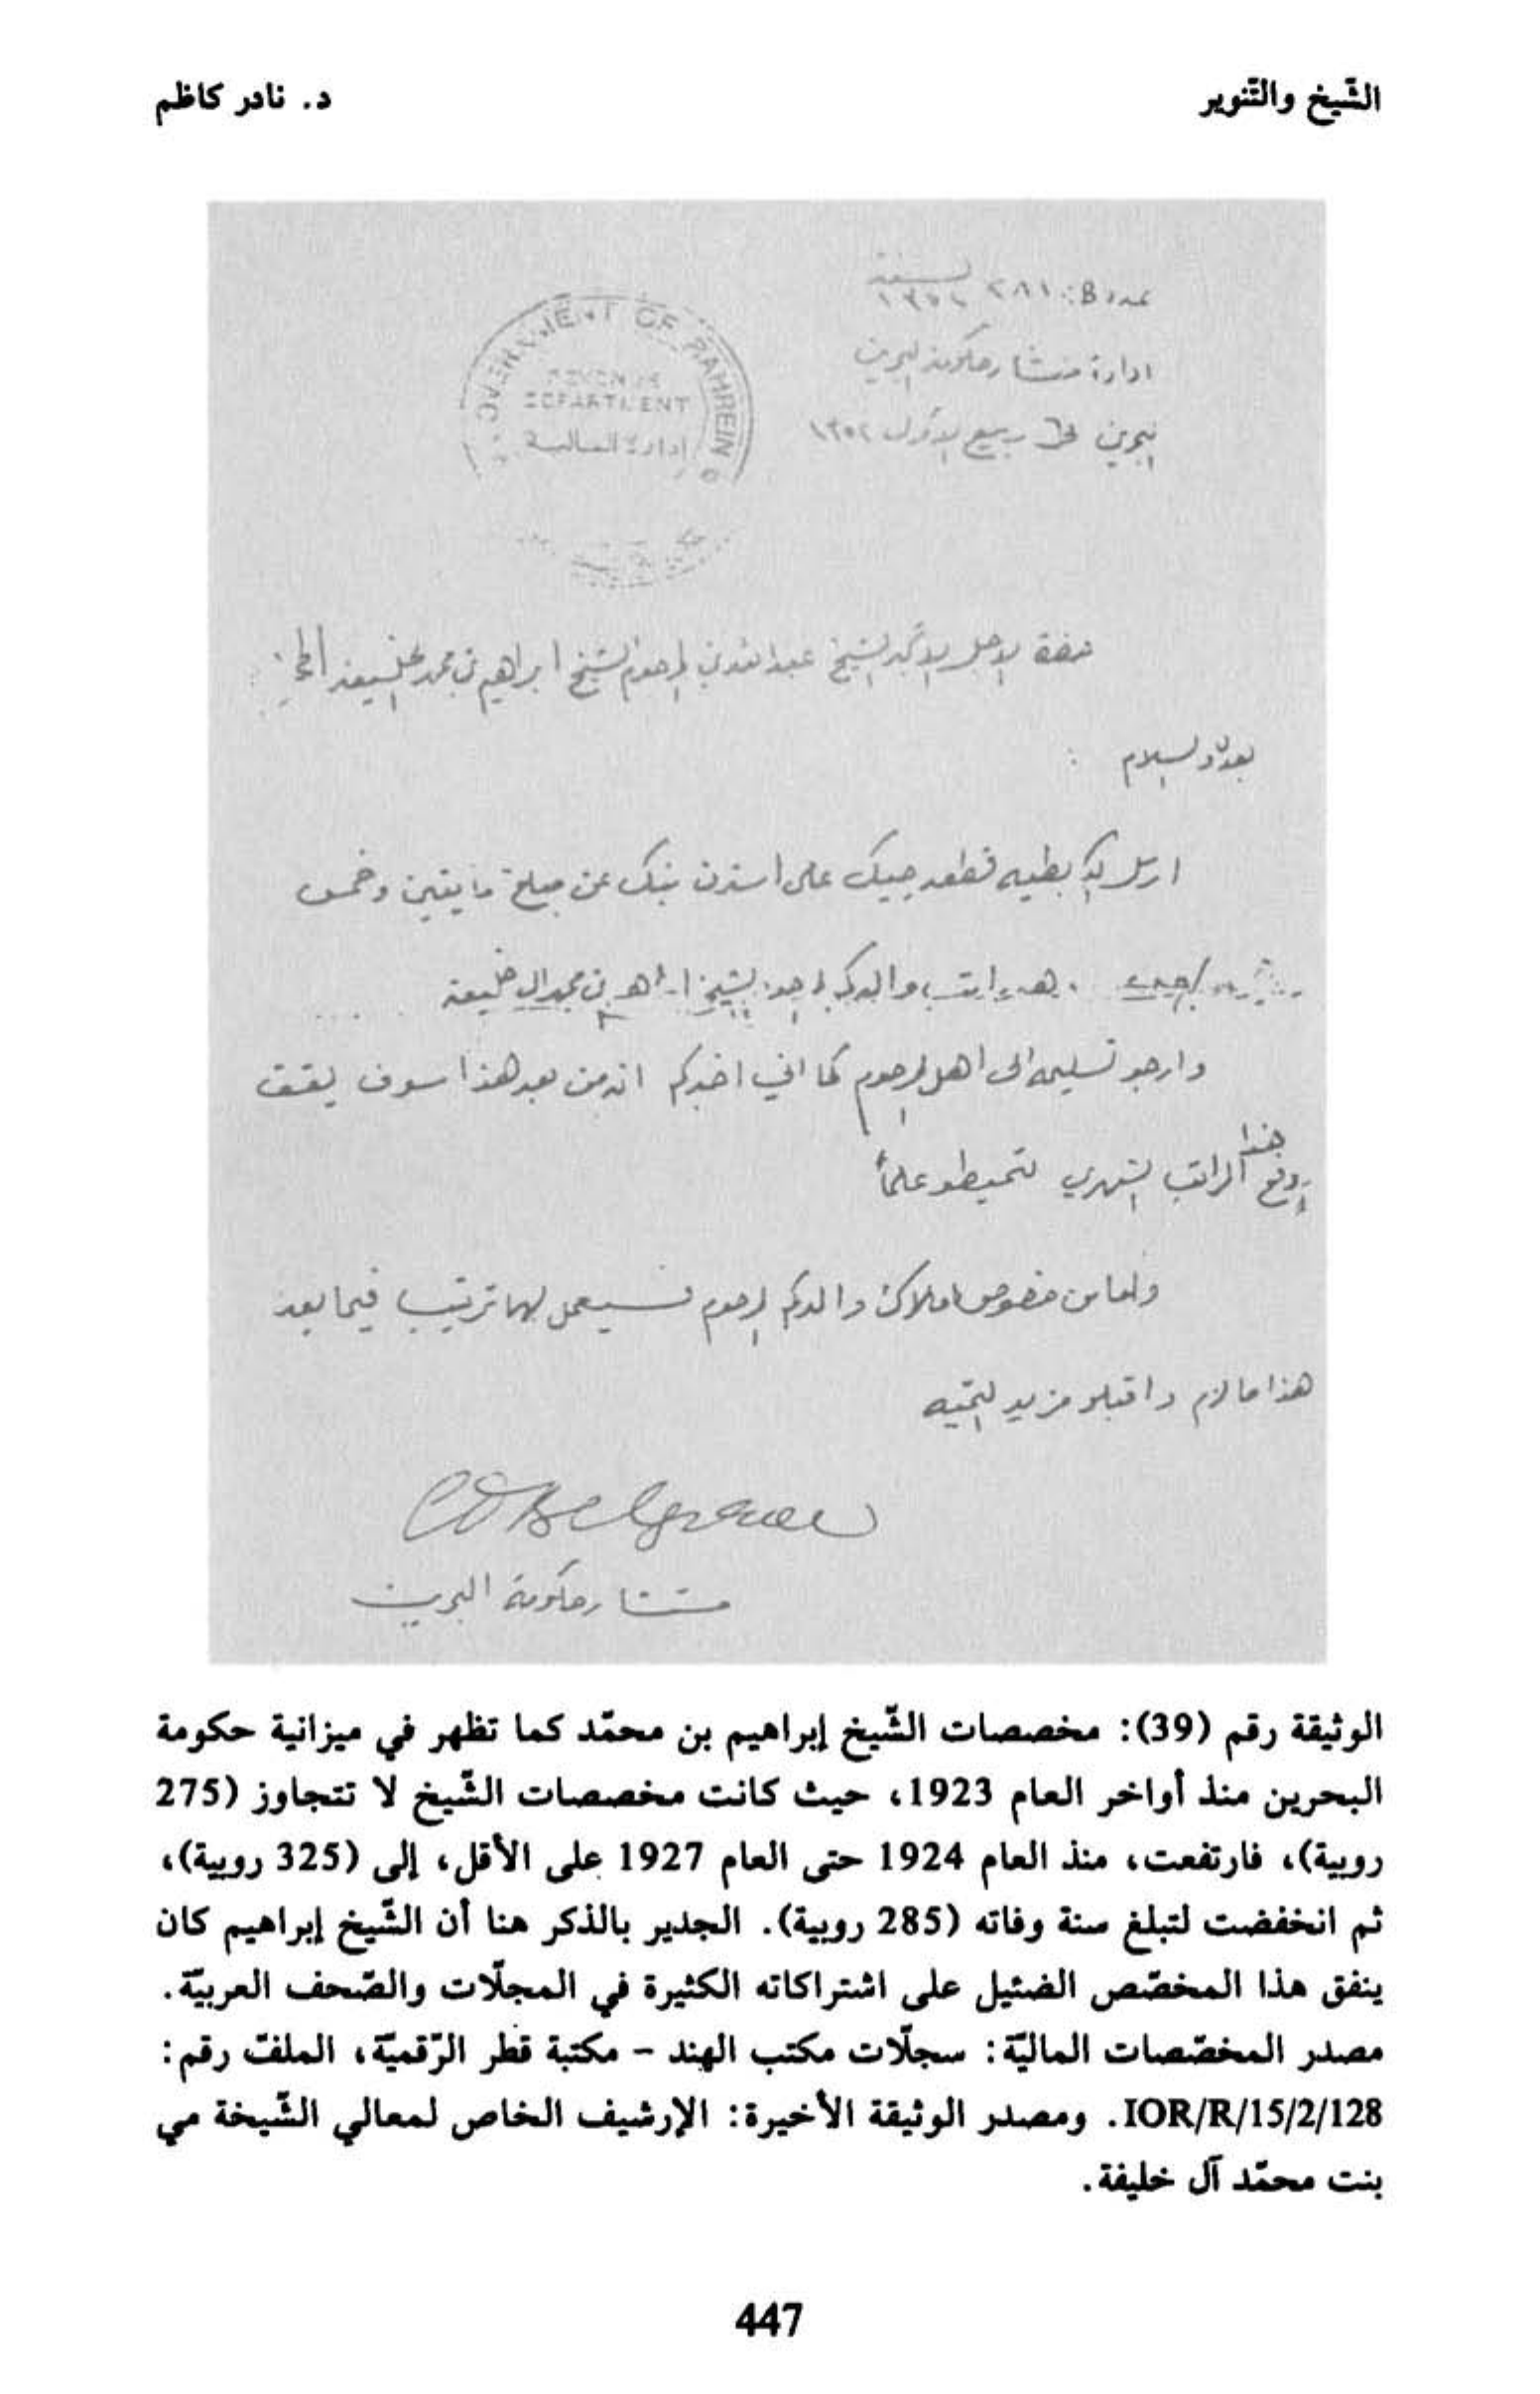 الشّيخ والتّنوير
د. نادر كاظم
عدد B: ٢٨١ لسنة ١٣٥٢
ادارة مستشار حكومة البحرين
البحرين ربيع الاول ١٣٥٢
GOVERNMENT OF BAHREIN
REVENUE
DEPARTMENT
إدارة المالية
حضرة الاجل الشيخ عبدالله بن المرحوم الشيخ ابراهيم بن محمد الخليفة
بعد السلام :
ارسل بطيه قطعه جيك على استرن بنك عن مبلغ مايتين وخمس
والدكم المرحوم الشيخ ابراهيم بن محمد ال خليفة
وارجو تسليمه الى اهل المرحوم كما اني اخبركم انه من بعد هذا سوف يقف
دفع هذا الراتب الشهري لتحيطو علماً
واما من خصوص املاك والدكم المرحوم فسيعمل لها ترتيب فيما بعد
هذا ما لزم واقبلو مزيد التحيه
CDBelgrave
مستشار حكومة البحرين
الوثيقة رقم (39): مخصصات الشّيخ إبراهيم بن محمّد كما تظهر في ميزانية حكومة
البحرين منذ أواخر العام 1923، حيث كانت مخصصات الشّيخ لا تتجاوز (275
روبية)، فارتفعت، منذ العام 1924 حتى العام 1927 على الأقل، إلى (325 روبية)،
ثم انخفضت لتبلغ سنة وفاته (285 روبية). الجدير بالذكر هنا أن الشّيخ إبراهيم كان
ينفق هذا المخصّص الضئيل على اشتراكاته الكثيرة في المجلّات والصّحف العربيّة.
مصدر المخصّصات الماليّة: سجلّات مكتب الهند - مكتبة قطر الرّقميّة، الملفّ رقم:
IOR/R/15/2/128. ومصدر الوثيقة الأخيرة: الإرشيف الخاص لمعالي الشّيخة مي
بنت محمّد آل خليفة.
447